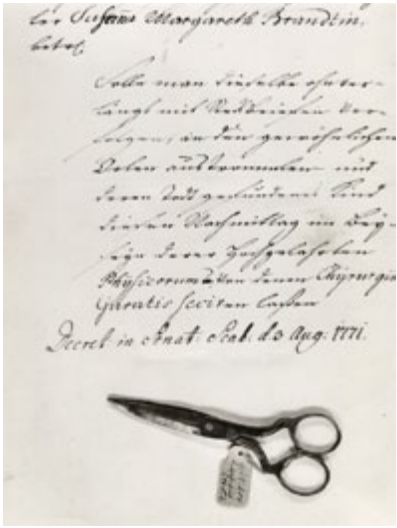 ler Susanna Margaretha Brandtin,
betref.
Solle man dieselbe ohnver-
längt mit Steckbriefen ver-
folgen, an den gewöhnlichen
Orten austrommeln und
deren Todt gefundenes Kind
diesen Nachmittag im Bey-
seyn derer Hochgelahrten
Physicorum denen Chyrurgis
juratis seciren laßen
Decret. in Senat: Scab. d. 3 Aug: 1771.